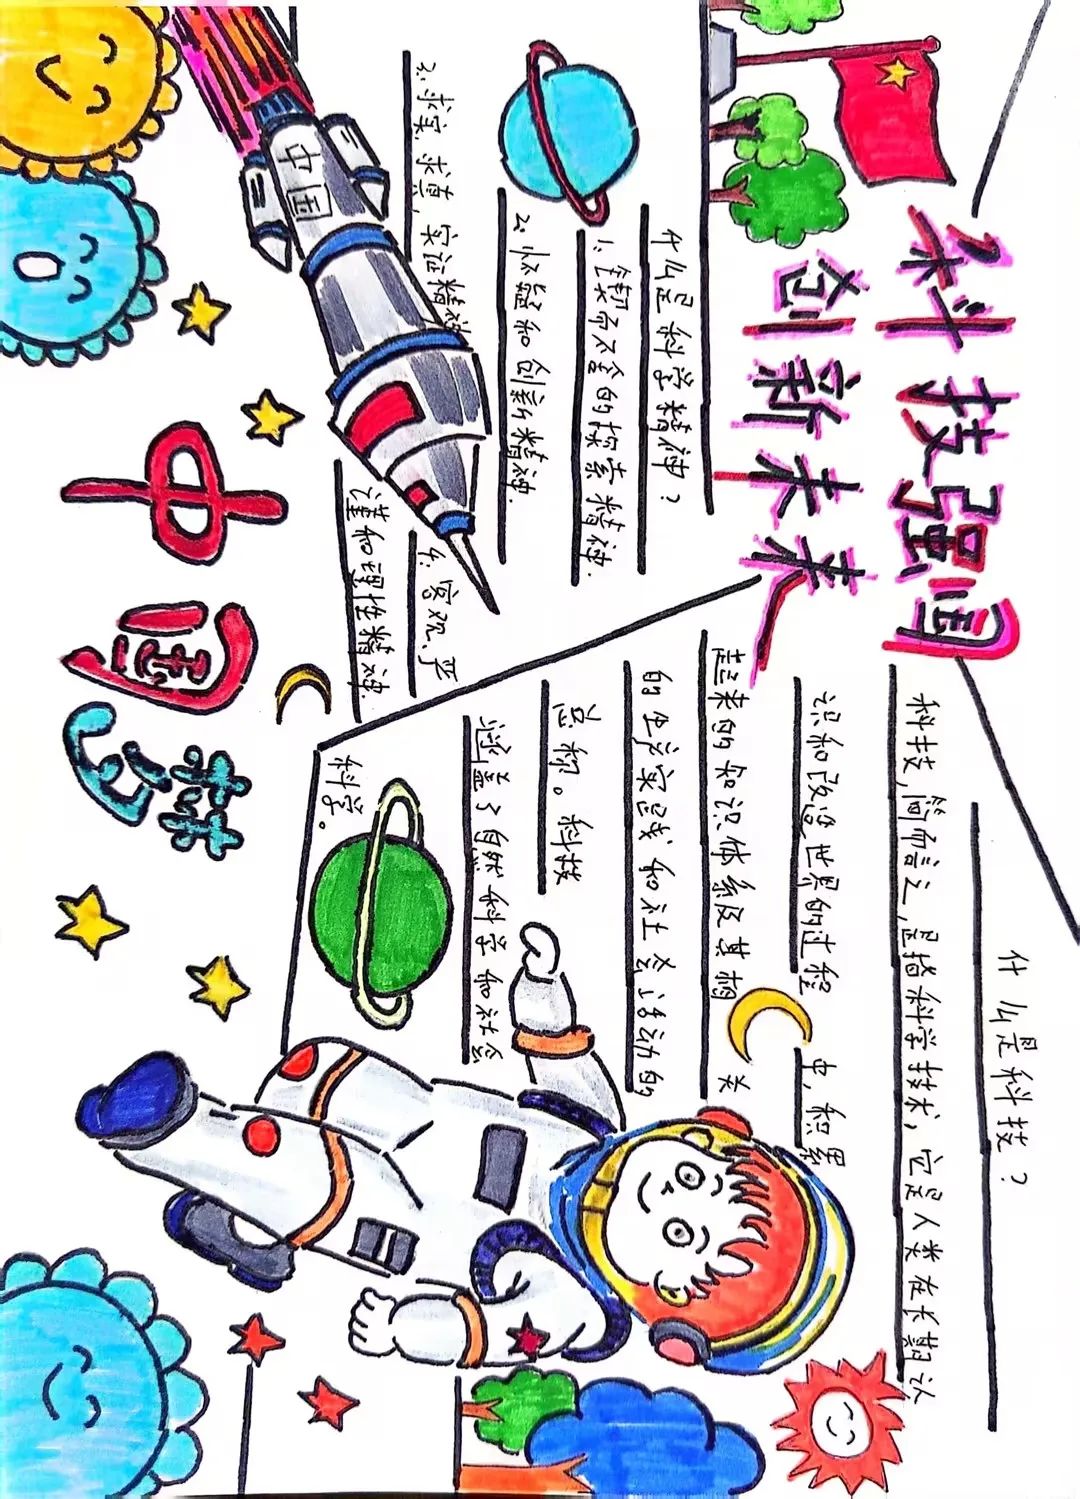 科技强国
创新未来
什么是科学精神?
1、锲而不舍的探索精神.
2、怀疑和创新精神.
3、求实、求真、实证精神
4、客观、严
谨和理性精神.
中国
什么是科技?
科技,简而言之,是指科学技术,它是人类在长期认
识和改造世界的过程中,积累
起来的知识体系及其相关
的生产实践和社会活动的
总称。科技
涵盖了自然科学和社会
科学。
中国梦